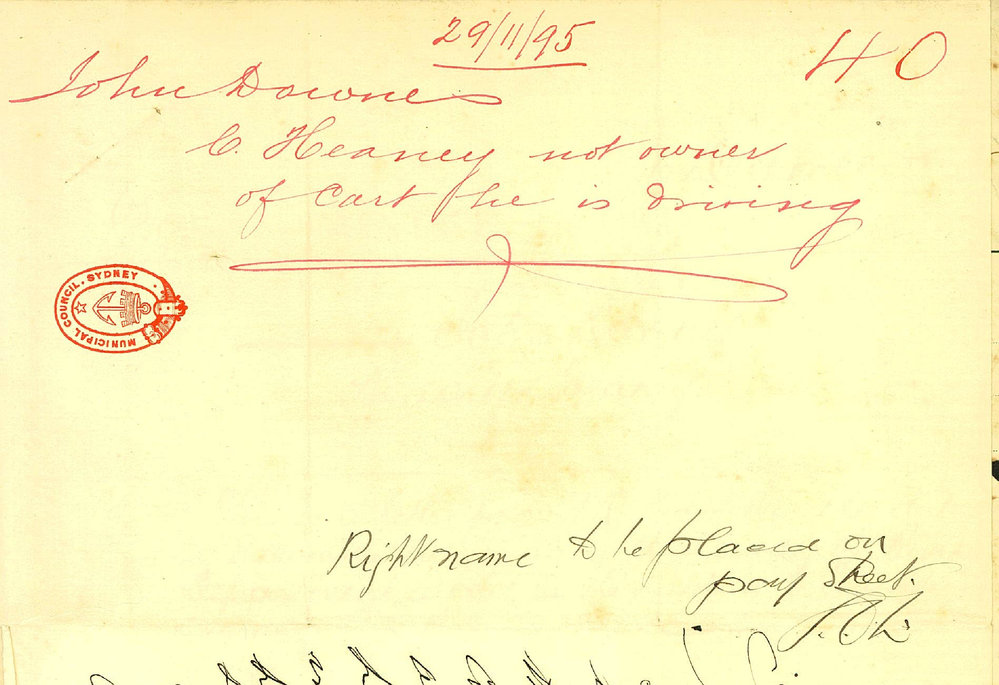 29/11/95
40
John Downes
C. Heaney not owner
of Cart he is driving
MUNICIPAL COUNCIL. SYDNEY
Right name to be placed on
pay Sheet.